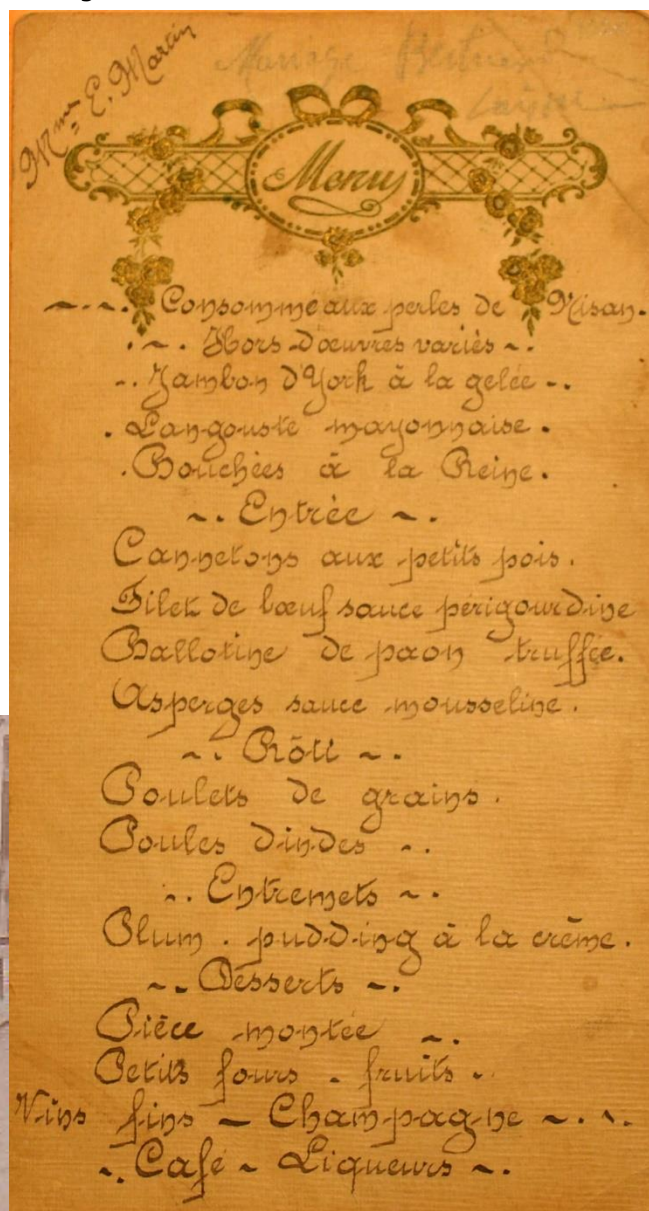 Mme E. Martin
Mariage
Menu
Consommé aux perles de Nisan.
Hors d'œuvres variés
Jambon d'York à la gelée
Langouste mayonnaise.
Bouchées à la Reine.
Entrée
Cannetons aux petits pois.
Filet de bœuf sauce périgourdine
Ballotine de paon truffée.
Asperges sauce mousseline.
Rôti
Poulets de grains.
Poules dindes
Entremets
Plum-pudding à la crème.
Desserts
Pièce montée
Petits fours - fruits
Vins fins - Champagne
Café - Liqueurs